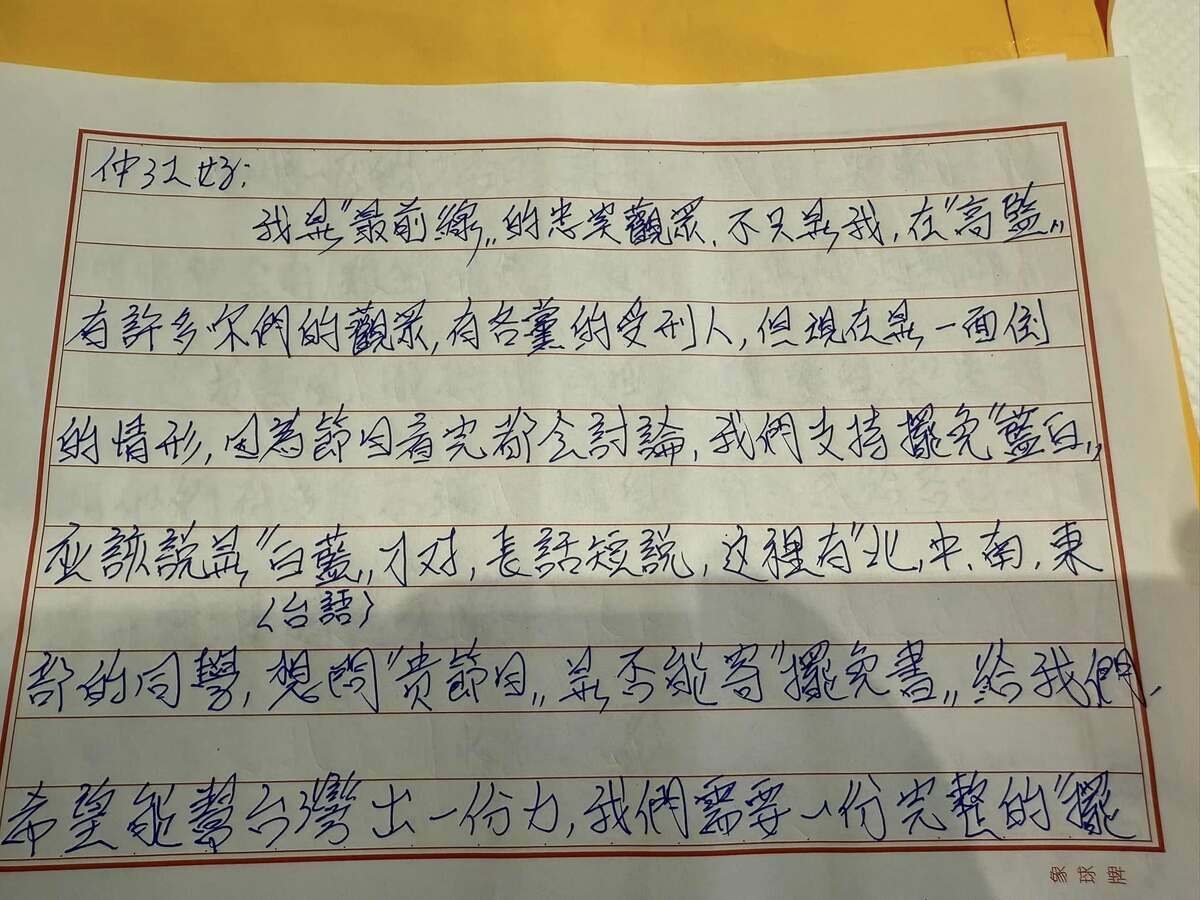 仲江好:
我是"最前線„的忠实觀眾,不只是我,在"高監„
有許多你們的觀眾,有各黨的受刑人,但現在是一面倒
的情形,因為節目看完都会討論,我們支持擺免"藍白„
应該說是"白藍„才对,長話短說,这裡有"北,中.南.東
〈台語〉
部的同學,想問"贵節目„是否能寄"擺免書„給我們,
希望能幫台灣出一份力,我們需要一份完整的"擺
象球牌